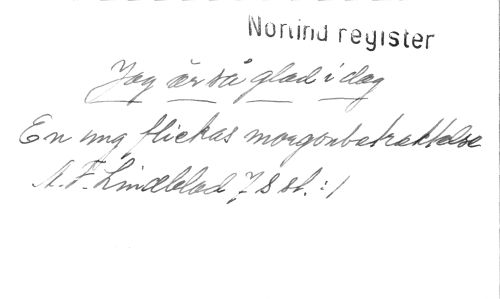 Norlind register
Jag är så glad i dag
En ung flickas morgonbetraktelse
A. F. Lindblad, 7 s st. :/